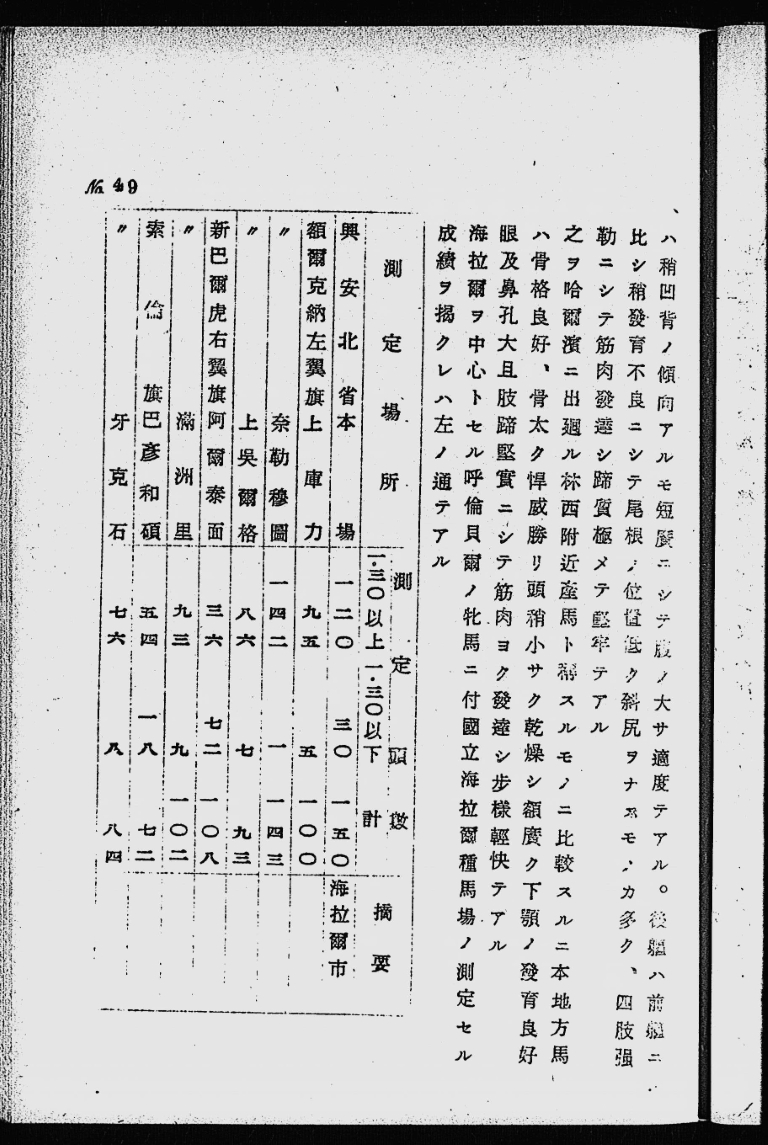 ハ稍凹背ノ傾向アルモ短廣ニシテ腹ノ大サ適度テアル。後軀ハ前軀ニ
比シ稍發育不良ニシテ尾根ノ位置低ク斜尻ヲナスモノカ多ク、四肢强
勒ニシテ筋肉發達シ蹄質極メテ堅牢テアル
之ヲ哈爾濱ニ出廻ル林西附近産馬ト稱スルモノニ比較スルニ本地方馬
ハ骨格良好、骨太ク悍威勝リ頭稍小サク乾燥シ額廣ク下顎ノ發育良好
眼及鼻孔大且肢蹄堅實ニシテ筋肉ヨク發達シ步樣輕快テアル
海拉爾ヲ中心トセル呼倫貝爾ノ牝馬ニ付國立海拉爾種馬場ノ測定セル
成績ヲ揭クレハ左ノ通テアル
測定場所 測定頭數 摘要
一・三〇以上 一・三〇以下 計
興安北省本場 一二〇 三〇 一五〇 海拉爾市
額爾克納左翼旗上庫力 九五 五 一〇〇
〃 奈勒穆圖 一四二 一 一四三
〃 上吳爾格 八六 七 九三
新巴爾虎右翼旗阿爾泰面 三六 七二 一〇八
〃 滿洲里 九三 九 一〇二
索倫旗巴彥和碩 五四 一八 七二
〃 牙克石 七六 八 八四
No. 49